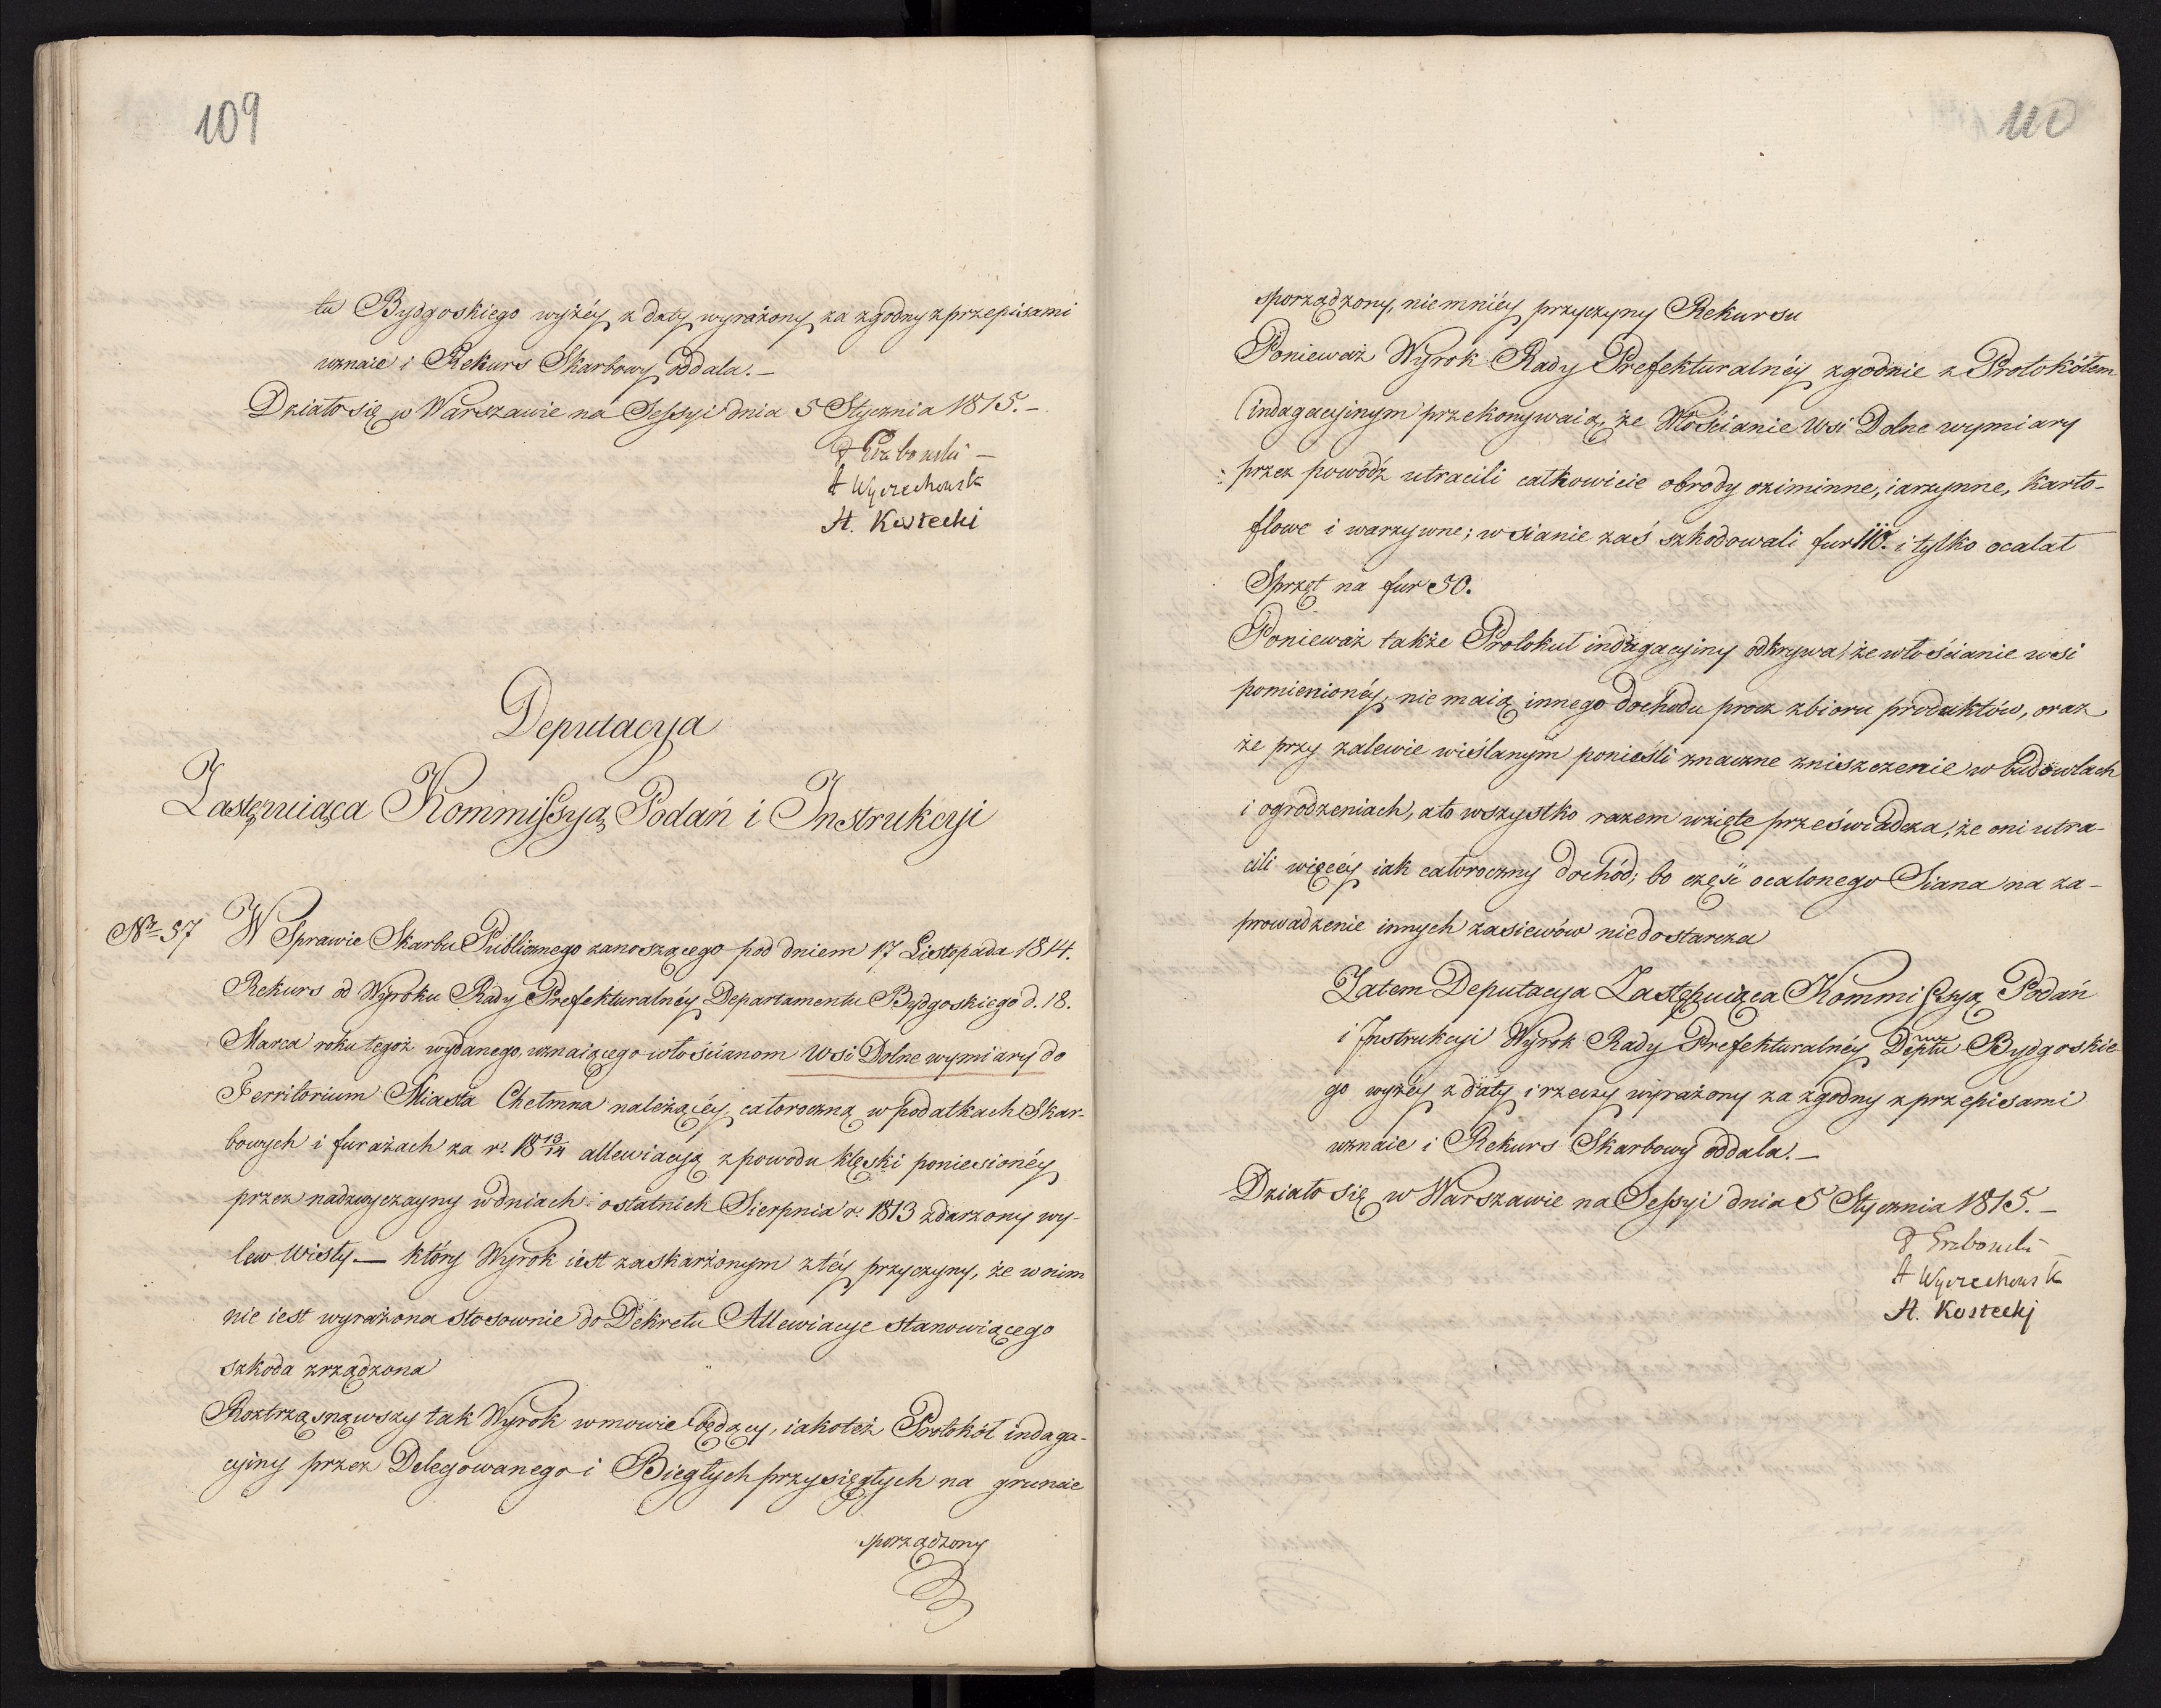 109
tu Bydgoskiego wyżéy z daty wyrażony za zgodny z przepisami
uznaie i Rekurs Skarbowy oddala. —
Działo się w Warszawie na Sessyi dnia 5 Stycznia 1815. —
A Wyczechowsk
A. Kostecki
Deputacya
Zastępuiąca Kommissyą Podań i Instrukcyi
Nr 57 W Sprawie Skarbu Publicznego zanoszącego pod dniem 17 Listopada 1814.
Rekurs od Wyroku Rady Prefekturalnéy Departamentu Bydgoskiego d. 18.
Marca roku tegoż wydanego, uznaiącego włościanom Wsi Dolne wymiary do
Territorium Miasta Chełmna należącéy, całoroczną w podatkach Skar-
bowych i furażach za r. 18 13/14 allewiacyą z powodu klęski poniesionéy
przez nadzwyczayny w dniach ostatnich Sierpnia r. 1813 zdarzony wy-
lew Wisły — który Wyrok iest zaskarżonym z téy przyczyny, że w nim
nie iest wyrażona stosownie do Dekretu Allewiacye stanowiącego
szkoda zrządzona
Roztrząsnąwszy tak Wyrok w mowie będący, iakoteż Protokół indaga-
cyiny przez Delegowanego i Biegłych przysięgłych na gruncie
sporządzony
110
sporządzony, niemniéy przyczyny Rekursu
Ponieważ Wyrok Rady Prefekturalnéy zgodnie z Protokółem
indagacyinym przekonywaią, że Włościanie Wsi Dolne wymiary
przez powódź utracili całkowicie obrody oziminne, iarzynne, karto-
flowe i warzywne; w sianie zaś szkodowali fur 110. i tylko ocalał
Sprzęt na fur 50.
Ponieważ także Protokuł indagacyiny odkrywa, że włościanie wsi
pomienionéy, nie maią innego dochodu procz zbioru produktów, oraz
że przy zalewie wiślanym ponieśli znaczne zniszczenie w budowlach
i ogrodzeniach, a to wszystko razem wzięte przeświadcza, że oni utra-
cili więcéy iak całoroczny dochód; bo część ocalonego Siana na za-
prowadzenie innych zasiewów niedostarcza
Zatem Deputacya Zastępuiąca Kommissyą Podań
i Instrukcyi Wyrok Rady Prefekturalnéy Deptu Bydgoskie-
go wyżéy z daty i rzeczy wyrażony za zgodny z przepisami
uznaie i Rekurs Skarbowy oddala. —
Działo się w Warszawie na Sessyi dnia 5 Stycznia 1815. —
A Wyczechowsk
A. Kostecki